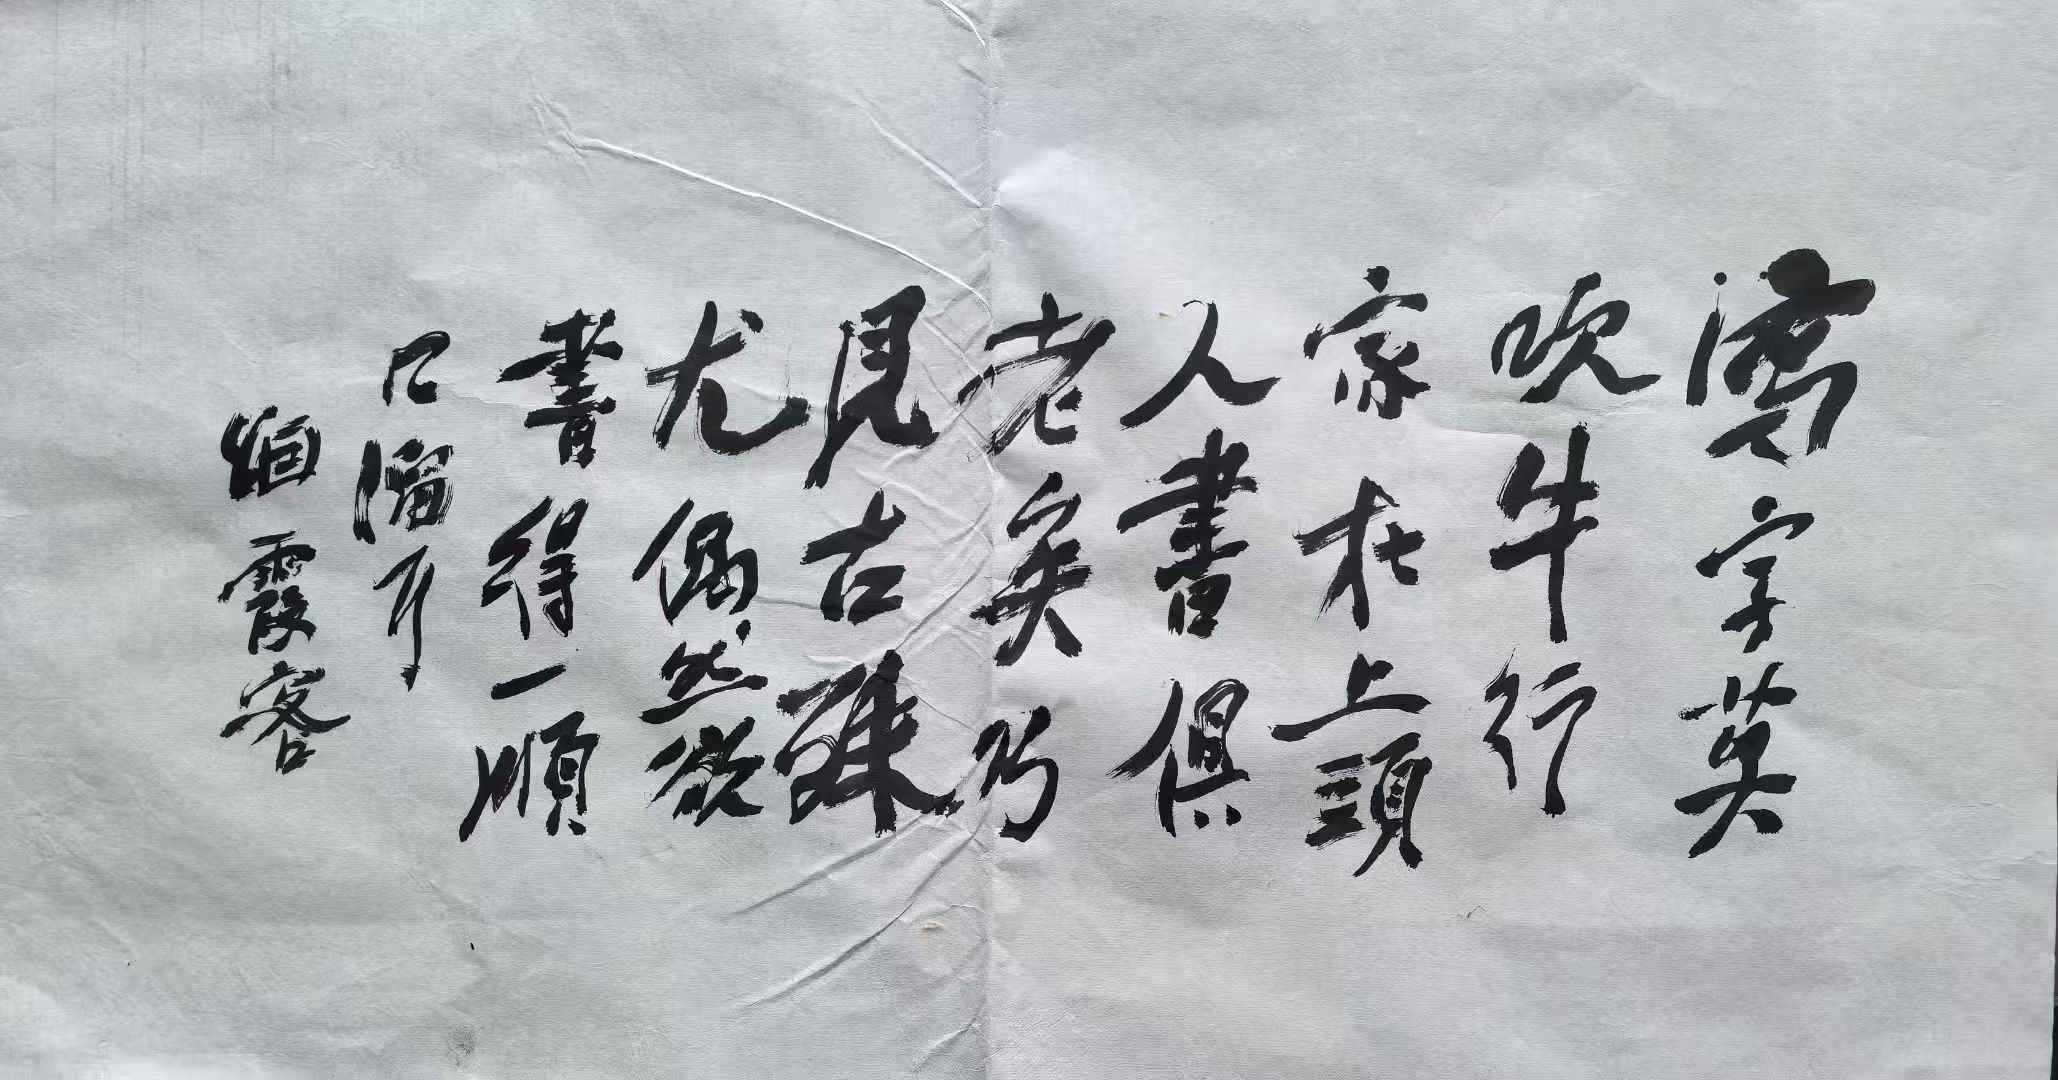 寫字莫
吹牛行
家在上頭
人書俱
老矣乃
見古殊
尤偶然欲
書得一順
口溜耳
烟霞客